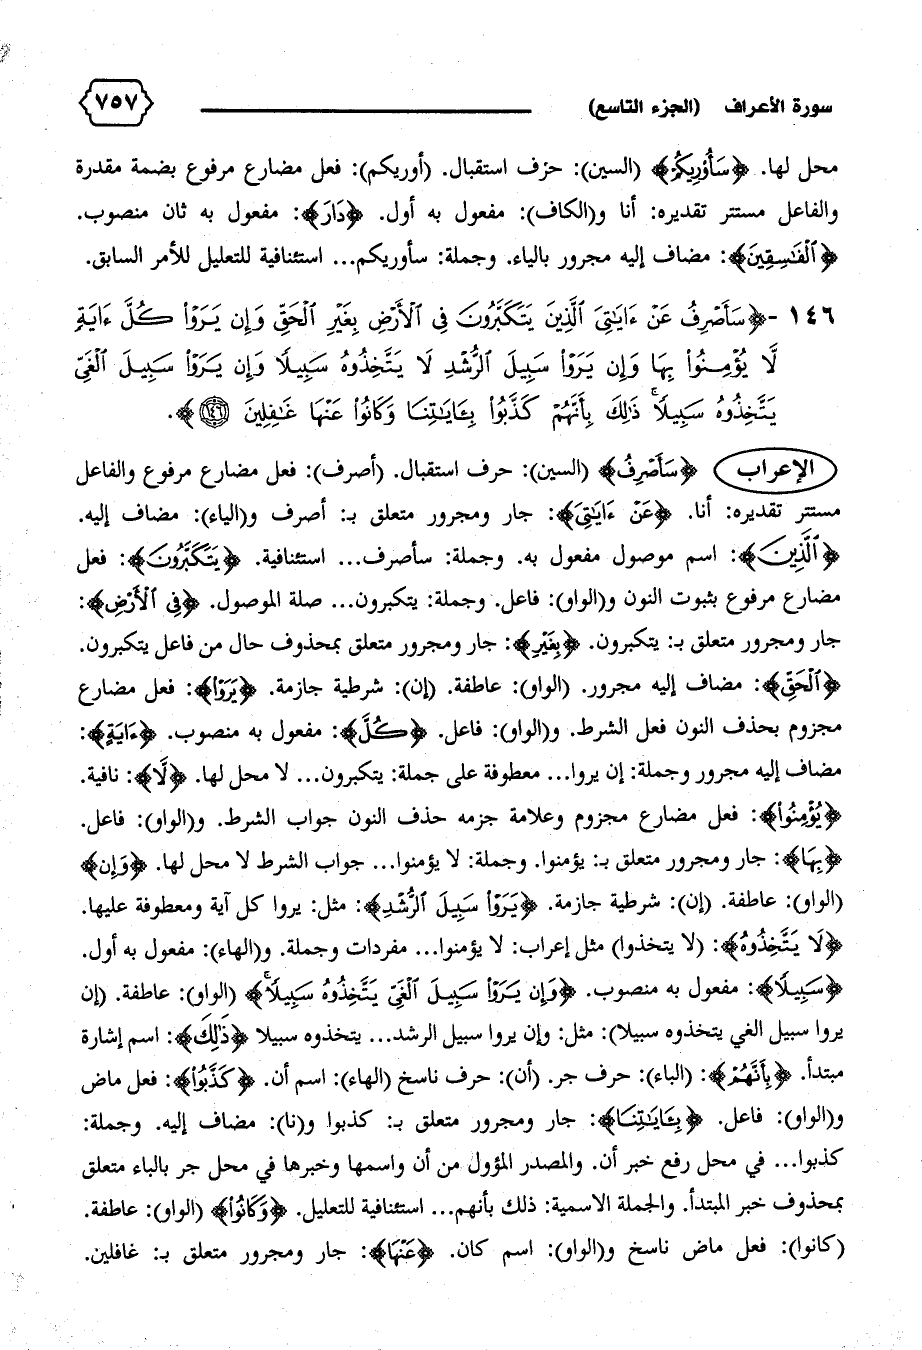 سورة الأعراف (الجزء التاسع) ٧٥٧
محل لها. ﴿سَأُوْرِيكُمْ﴾ (السين): حزف استقبال. (أوريكم): فعل مضارع مرفوع بضمة مقدرة
والفاعل مستتر تقديره: أنا و(الكاف): مفعول به أول. ﴿دَارَ﴾: مفعول به ثان منصوب.
﴿ٱلْفَٰسِقِينَ﴾: مضاف إليه مجرور بالياء. وجملة: سأوريكم... استئنافية للتعليل للأمر السابق.
١٤٦ - ﴿سَأَصْرِفُ عَنْ ءَايَٰتِىَ ٱلَّذِينَ يَتَكَبَّرُونَ فِى ٱلْأَرْضِ بِغَيْرِ ٱلْحَقِّ وَإِن يَرَوْا۟ كُلَّ ءَايَةٍ
لَّا يُؤْمِنُوا۟ بِهَا وَإِن يَرَوْا۟ سَبِيلَ ٱلرُّشْدِ لَا يَتَّخِذُوهُ سَبِيلًا وَإِن يَرَوْا۟ سَبِيلَ ٱلْغَىِّ
يَتَّخِذُوهُ سَبِيلًاۚ ذَٰلِكَ بِأَنَّهُمْ كَذَّبُوا۟ بِـَٔايَٰتِنَا وَكَانُوا۟ عَنْهَا غَٰفِلِينَ ١٤٦﴾.
الإعراب ﴿سَأَصْرِفُ﴾ (السين): حرف استقبال. (أصرف): فعل مضارع مرفوع والفاعل
مستتر تقديره: أنا. ﴿عَنْ ءَايَٰتِىَ﴾: جار ومجرور متعلق بـ: أصرف و(الياء): مضاف إليه.
﴿ٱلَّذِينَ﴾: اسم موصول مفعول به. وجملة: سأصرف... استئنافية. ﴿يَتَكَبَّرُونَ﴾: فعل
مضارع مرفوع بثبوت النون و(الواو): فاعل. وجملة: يتكبرون... صلة الموصول. ﴿فِى ٱلْأَرْضِ﴾:
جار ومجرور متعلق بـ: يتكبرون. ﴿بِغَيْرِ﴾: جار ومجرور متعلق بمحذوف حال من فاعل يتكبرون.
﴿ٱلْحَقِّ﴾: مضاف إليه مجرور. (الواو): عاطفة. (إن): شرطية جازمة. ﴿يَرَوْا۟﴾: فعل مضارع
مجزوم بحذف النون فعل الشرط. و(الواو): فاعل. ﴿كُلَّ﴾: مفعول به منصوب. ﴿ءَايَةٍ﴾:
مضاف إليه مجرور وجملة: إن يروا... معطوفة على جملة: يتكبرون... لا محل لها. ﴿لَّا﴾: نافية.
﴿يُؤْمِنُوا۟﴾: فعل مضارع مجزوم وعلامة جزمه حذف النون جواب الشرط. و(الواو): فاعل.
﴿بِهَا﴾: جار ومجرور متعلق بـ: يؤمنوا. وجملة: لا يؤمنوا... جواب الشرط لا محل لها. ﴿وَإِن﴾
(الواو): عاطفة. (إن): شرطية جازمة. ﴿يَرَوْا۟ سَبِيلَ ٱلرُّشْدِ﴾: مثل: يروا كل آية ومعطوفة عليها.
﴿لَا يَتَّخِذُوهُ﴾: (لا يتخذوا) مثل إعراب: لا يؤمنوا... مفردات وجملة. و(الهاء): مفعول به أول.
﴿سَبِيلًا﴾: مفعول به منصوب. ﴿وَإِن يَرَوْا۟ سَبِيلَ ٱلْغَىِّ يَتَّخِذُوهُ سَبِيلًاۚ﴾ (الواو): عاطفة. (إن
يروا سبيل الغي يتخذوه سبيلا): مثل: وإن يروا سبيل الرشد... يتخذوه سبيلا ﴿ذَٰلِكَ﴾: اسم إشارة
مبتدأ. ﴿بِأَنَّهُمْ﴾: (الباء): حرف جر. (أن): حرف ناسخ (الهاء): اسم أن. ﴿كَذَّبُوا۟﴾: فعل ماض
و(الواو): فاعل. ﴿بِـَٔايَٰتِنَا﴾: جار ومجرور متعلق بـ: كذبوا و(نا): مضاف إليه. وجملة:
كذبوا... في محل رفع خبر أن. والمصدر المؤول من أن واسمها وخبرها في محل جر بالباء متعلق
بمحذوف خبر المبتدأ. والجملة الاسمية: ذلك بأنهم... استئنافية للتعليل. ﴿وَكَانُوا۟﴾ (الواو): عاطفة.
(كانوا): فعل ماض ناسخ و(الواو): اسم كان. ﴿عَنْهَا﴾: جار ومجرور متعلق بـ: غافلين.